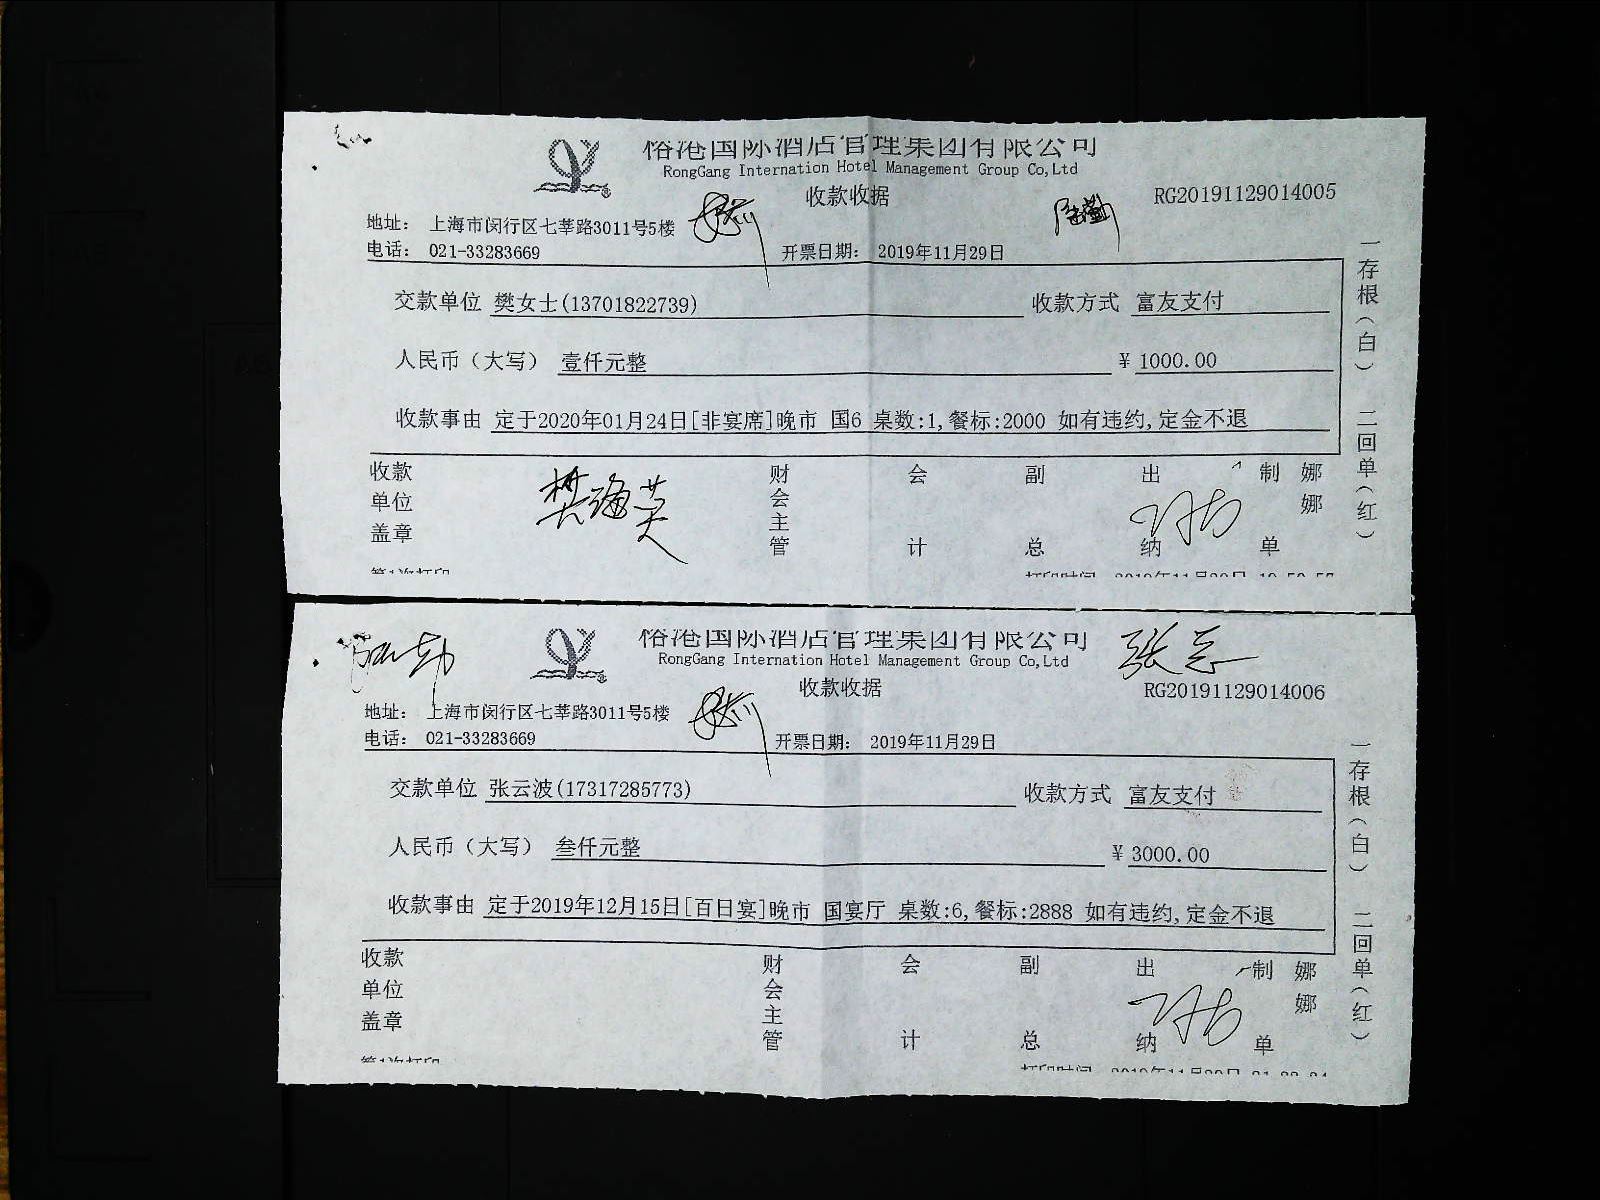 裕港国际酒店管理集团有限公司
RongGang Internation Hotel Management Group Co,Ltd
收款收据
RG20191129014005
地址： 上海市闵行区七莘路3011号5楼
电话： 021-33283669
开票日期： 2019年11月29日
交款单位 樊女士(13701822739) 收款方式 富友支付
人民币（大写） 壹仟元整 ￥ 1000.00
收款事由 定于2020年01月24日[非宴席]晚市 国6 桌数:1,餐标:2000 如有违约,定金不退
收款单位盖章 樊海英 财会主管 会计 副总 出纳 制单 娜娜
一存根（白） 二回单（红）
第1次打印
打印时间 2019年11月29日
裕港国际酒店管理集团有限公司
RongGang Internation Hotel Management Group Co,Ltd
收款收据
RG20191129014006
地址： 上海市闵行区七莘路3011号5楼
电话： 021-33283669
开票日期： 2019年11月29日
交款单位 张云波(17317285773) 收款方式 富友支付
人民币（大写） 叁仟元整 ￥ 3000.00
收款事由 定于2019年12月15日[百日宴]晚市 国宴厅 桌数:6,餐标:2888 如有违约,定金不退
收款单位盖章 财会主管 会计 副总 出纳 制单 娜娜
一存根（白） 二回单（红）
第1次打印
打印时间 2019年11月29日